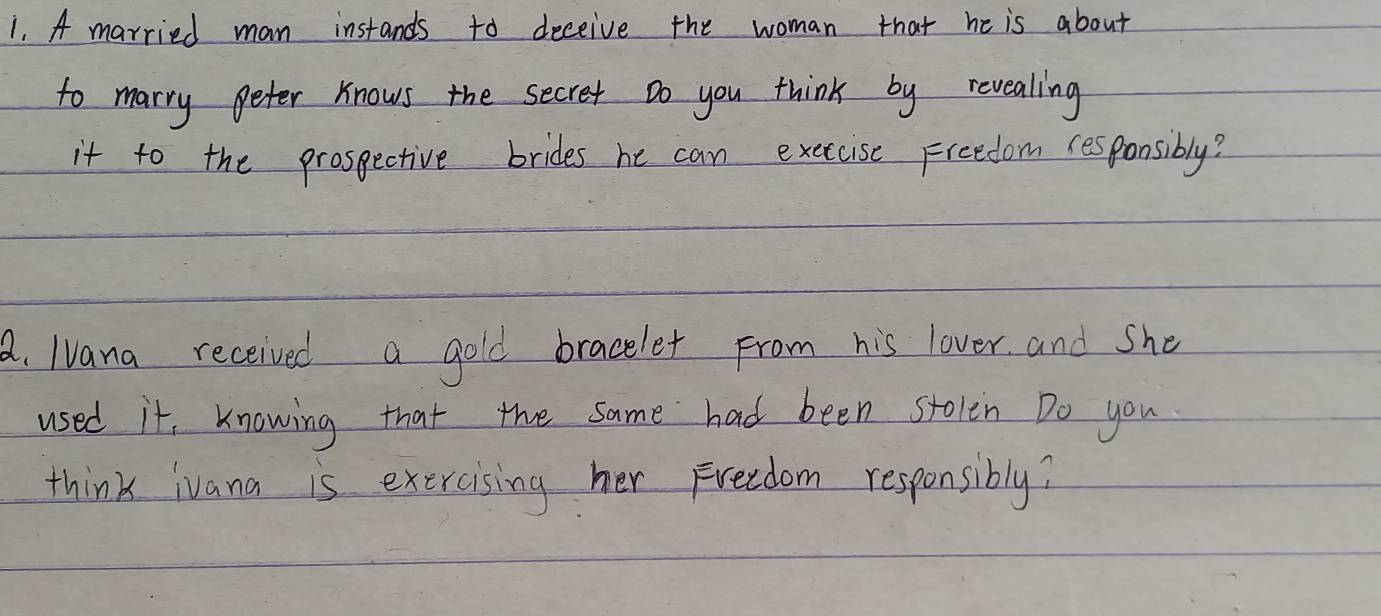 1. A married man instands to deceive the woman that he is about
to marry peter knows the secret Do you think by revealing
it to the prospective brides he can exercise Freedom responsibly?
2. Ivana received a gold bracelet From his lover. and She
used it, knowing that the same had been stolen Do you
think ivana is exercising her Freedom responsibly?